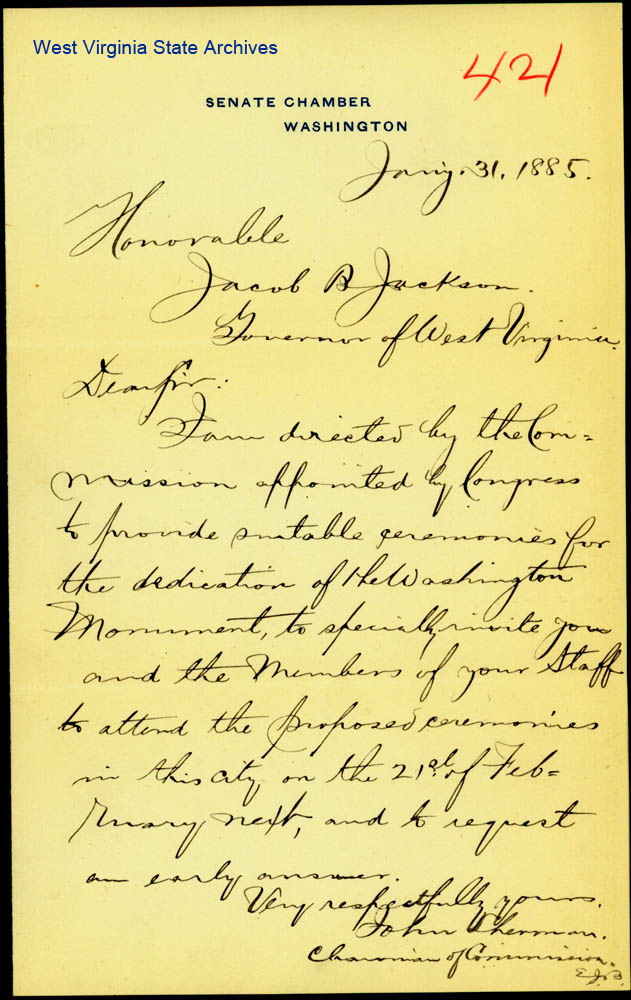 West Virginia State Archives
421
SENATE CHAMBER
WASHINGTON
Jan'y. 31, 1885.
Honorable
Jacob B Jackson.
Governor of West Virginia.
Dear Sir:
I am directed by the Com=
mission appointed by Congress
to provide suitable ceremonies for
the dedication of the Washington
Monument, to specially invite you
and the Members of your Staff
to attend the proposed ceremonies
in this city on the 21st of Feb=
ruary next, and to request
an early answer.
Very respectfully yours,
John Sherman.
Chairman of Commission.
E.J.B.